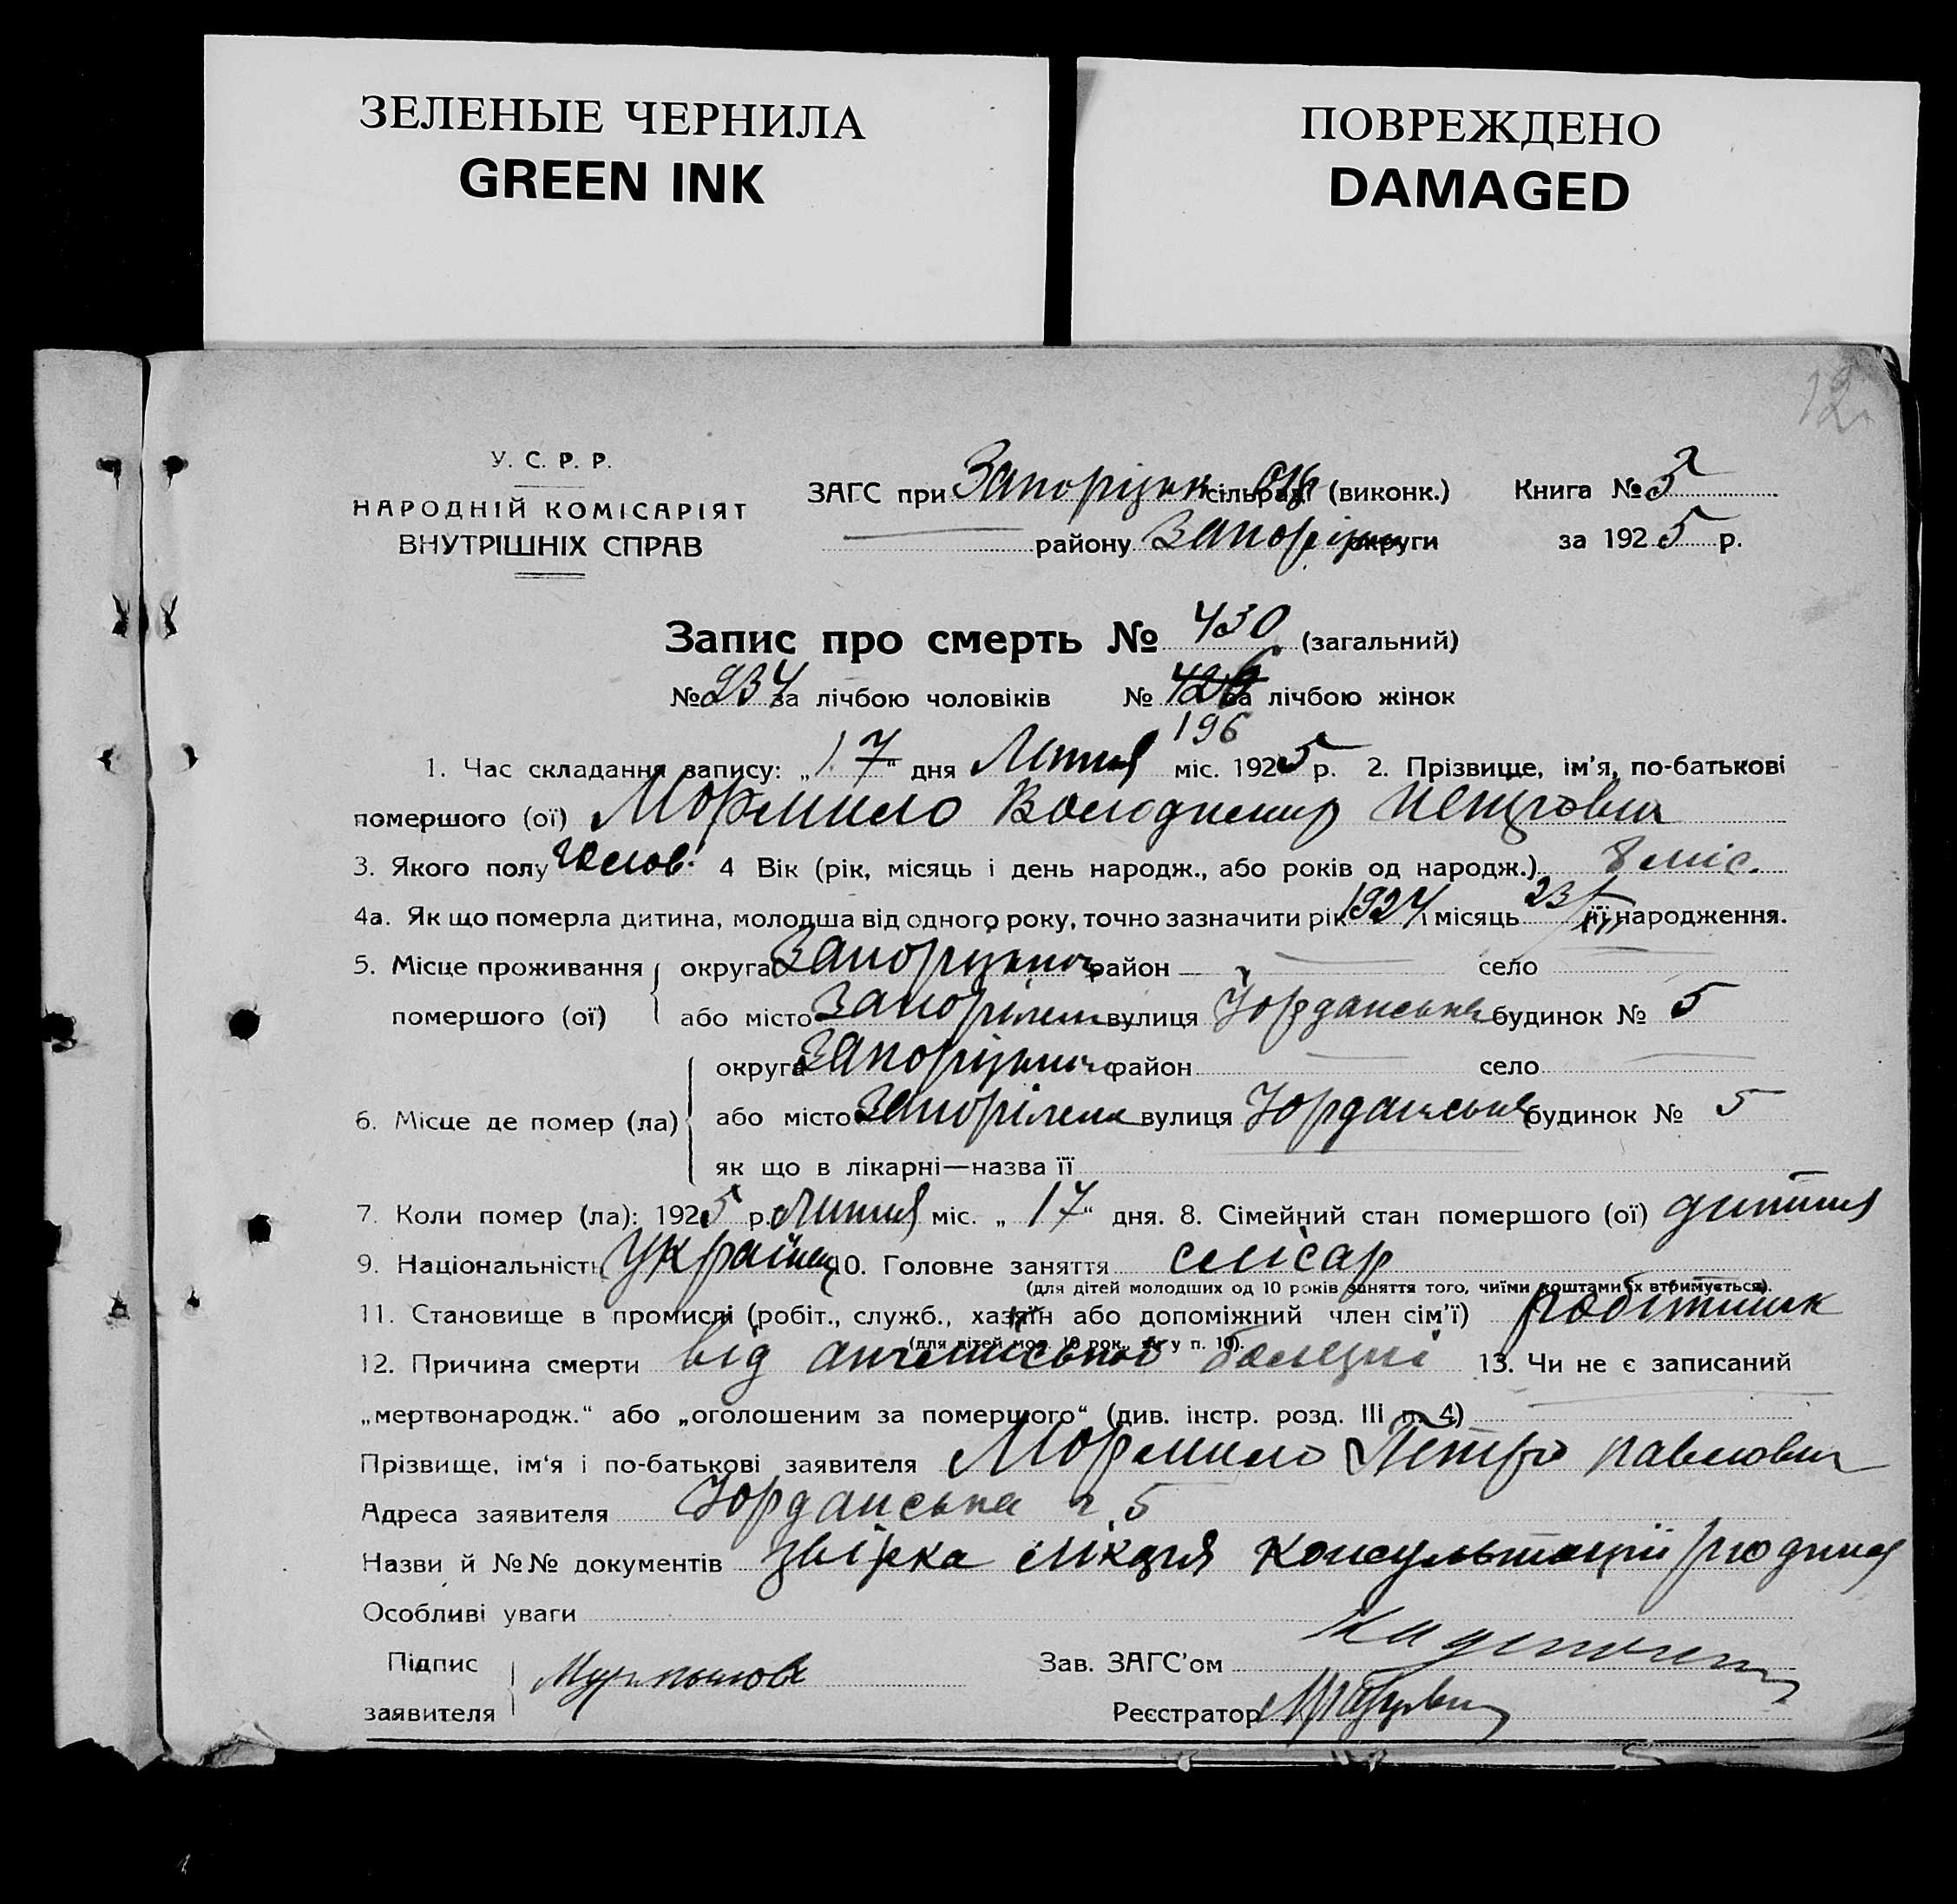 ЗЕЛЕНЫЕ ЧЕРНИЛА
GREEN INK
ПОВРЕЖДЕНО
DAMAGED
12
У. С. Р. Р.
НАРОДНІЙ КОМІСАРІЯТ
ВНУТРІШНІХ СПРАВ
ЗАГС при Запорізьк сільраді (виконк.) Книга № 5
району Запорізьк округи за 1925 р.
Запис про смерть № 430 (загальний)
№ 234 за лічбою чоловіків № 426 за лічбою жінок
196
1. Час складання запису: „17“ дня Липня міс. 1925 р. 2. Прізвище, ім'я, по-батькові
помершого (ої) Мормило Володимир Петрович
3. Якого полу чолов. 4 Вік (рік, місяць і день народж., або років од народж.) 8 міс.
4а. Як що померла дитина, молодша від одного року, точно зазначити рік 1924 і місяць 23/ її народження.
5. Місце проживання помершого (ої) округа Запорізька район — село —
або місто Запоріжжя вулиця Йорданська будинок № 5
6. Місце де помер (ла) округа Запорізька район — село —
або місто Запоріжжя вулиця Йорданська будинок № 5
як що в лікарні—назва її
7. Коли помер (ла): 1925 р. Липня міс. „17“ дня. 8. Сімейний стан помершого (ої) дитина
9. Національність Українець 10. Головне заняття слісар
(для дітей молодших од 10 років заняття того, чиїми коштами їх втримується).
11. Становище в промислі (робіт., служб., хазяїн або допоміжний член сім'ї) робітник
(для дітей мол. 10 рок., як у п. 10).
12. Причина смерти від англійської болезні 13. Чи не є записаний
„мертвонародж.“ або „оголошеним за помершого“ (див. інстр. розд. III п. 4) —
Прізвище, ім'я і по-батькові заявителя Мормило Петро Павлович
Адреса заявителя Йорданська ч. 5
Назви й №№ документів звірка лікаря консультації
Особливі уваги
Підпис заявителя
Зав. ЗАГС'ом
Реєстратор